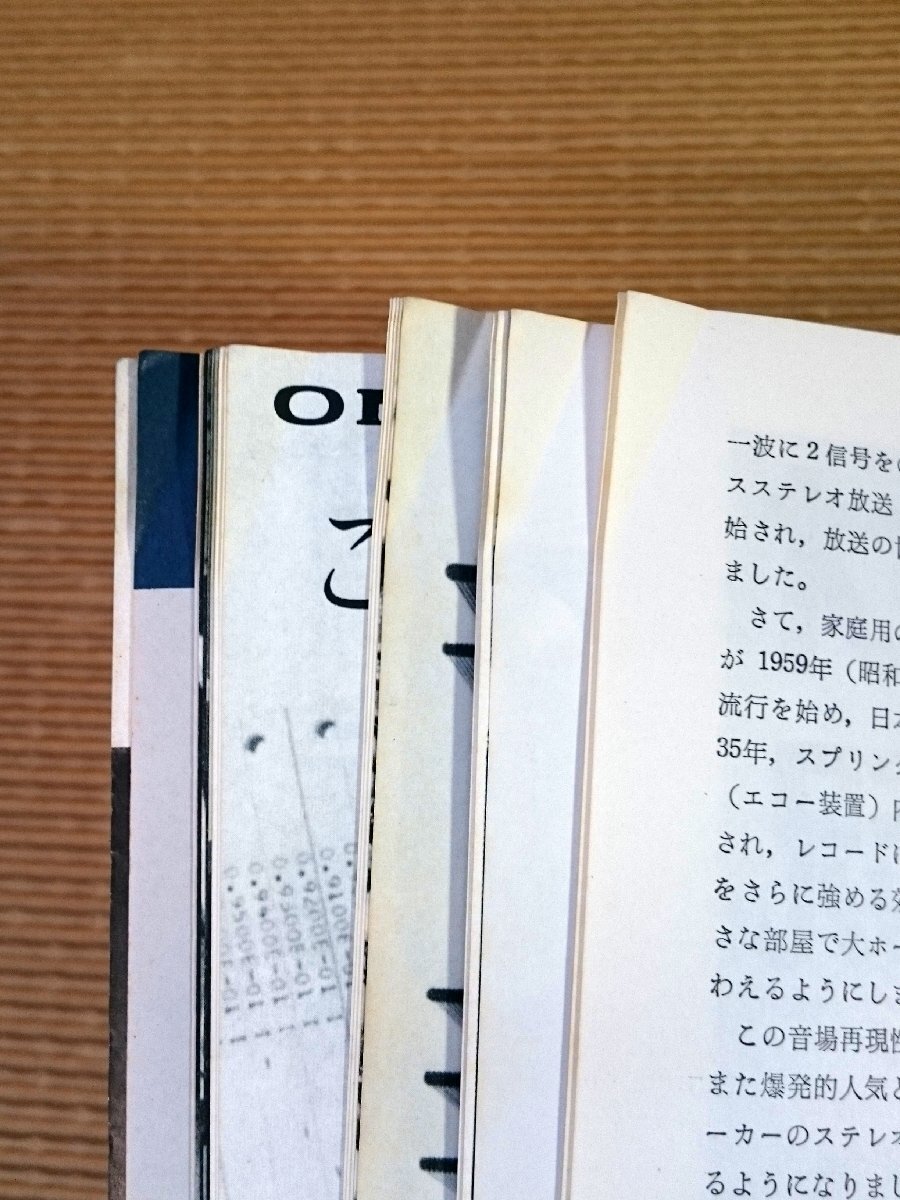 こ
一波に2信号を
スステレオ放送
始され，放送の
ました。
さて，家庭用の
が 1959年（昭和
流行を始め，日
35年，スプリン
（エコー装置）
され，レコード
をさらに強める
さな部屋で大ホー
わえるようにし
この音場再現
また爆発的人気
ーカーのステレオ
るようになりまし